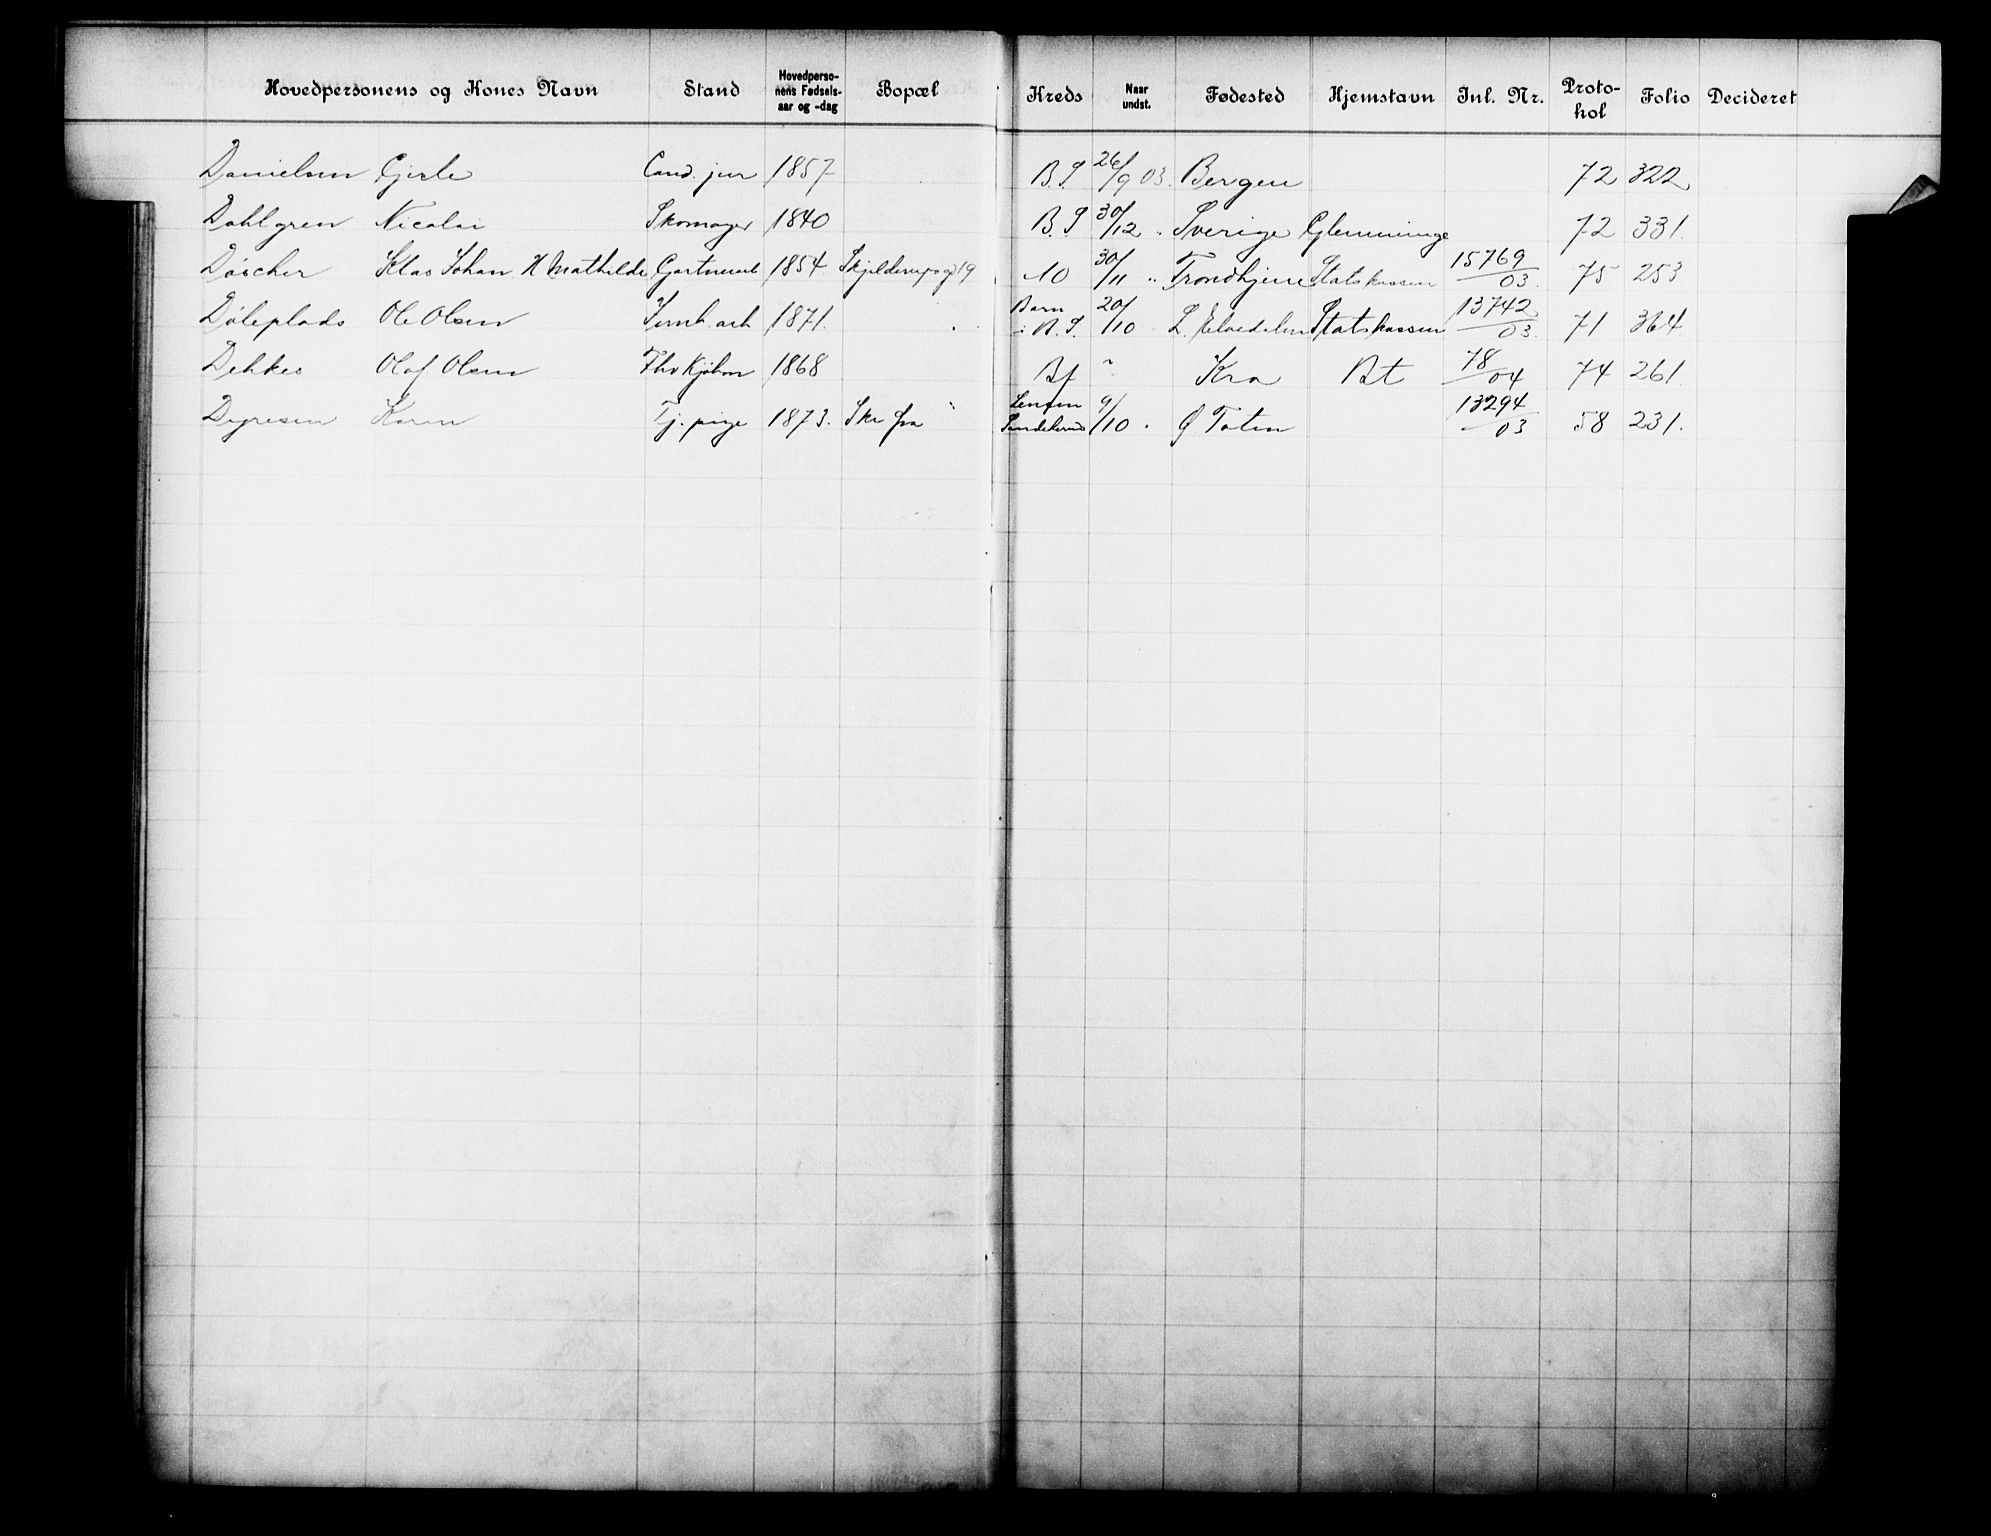 Hovedpersonens og Kones Navn Stand Hovedperso-nens Fødsels-aar og -dag Bopæl Kreds Naar undst. Fødested Hjemstavn Inl. Nr. Proto-kol Folio Decideret
Danielsen Gjerle Cand. jur 1857 B. S 26/9 03. Bergen 72 322
Dahlgren Nicolai Skomager 1840 B. S 30/12 " Sverige Glemminge 72 331.
Døscher Klas Johan H Mathilde Gartnerarb 1854 Skjelderupsg 19 10 30/11 " Trondhjem Statskassen 15769/03. 75 253
Døleplads Ole Olsen 1871. Barn i B. S. 20/10 " L. Elvedalen Statskassen 13742/03. 71 364
Dehkes Olaf Olsen 1868 Bf " Kra Bt 78/04 74 261.
Dyresen Karen Tj. pige 1873. Ske fra 9/10 " Ø Toten 13294/03 58 231.